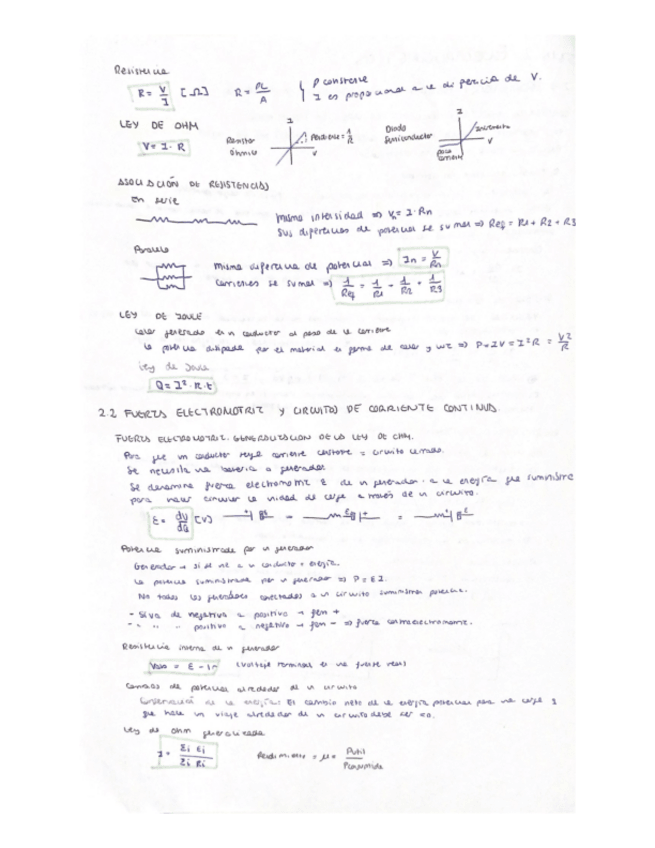 Resistencia
R = V/I [Ω] R = ρL/A { ρ constante
I es proporcional a la diferencia de V.
LEY DE OHM
V = I · R
Resistor óhmico I V Pendiente = 1/R Diodo Semiconductor I V
ASOCIACIÓN DE RESISTENCIAS
En serie
misma intensidad => Vn = I · Rn
Sus diferencias de potencial se suman => Req = R1 + R2 + R3
Paralelo
misma diferencia de potencial => In = V/Rn
Corrientes se suman => 1/Req = 1/R1 + 1/R2 + 1/R3
LEY DE JOULE
Calor generado en un conductor al paso de la corriente
La potencia disipada por el material en forma de calor y luz => P = IV = I²R = V²/R
Ley de Joule
Q = I² · R · t
2.2 FUERZA ELECTROMOTRIZ Y CIRCUITOS DE CORRIENTE CONTINUA.
FUERZA ELECTROMOTRIZ. GENERALIZACION DE LA LEY DE OHM.
Para que un conductor tenga corriente constante = circuito cerrado.
Se necesita una batería o generador
Se denomina fuerza electromotriz ε de un generador a la energía que suministra
para hacer circular la unidad de carga a través de un circuito.
ε = dU/dq [V]
Potencia suministrada por un generador
Generador → si se une a un conducto = energía.
La potencia suministrada por un generador => P = ε I.
No todos los generadores conectados a un circuito suministran potencia.
- Si va de negativo a positivo → fem +
- " " " positivo a negativo → fem - => fuerza contraelectromotriz.
Resistencia interna de un generador
= ε - Ir (voltaje terminal de una fuente real)
Cambios de potencial alrededor de un circuito
Conservación de la energía: El cambio neto de la energía potencial para una carga q
que hace un viaje alrededor de un circuito debe ser = 0.
Ley de Ohm generalizada
I = Σi εi / Σi Ri Rendimiento = μ = Pútil / Pconsumida